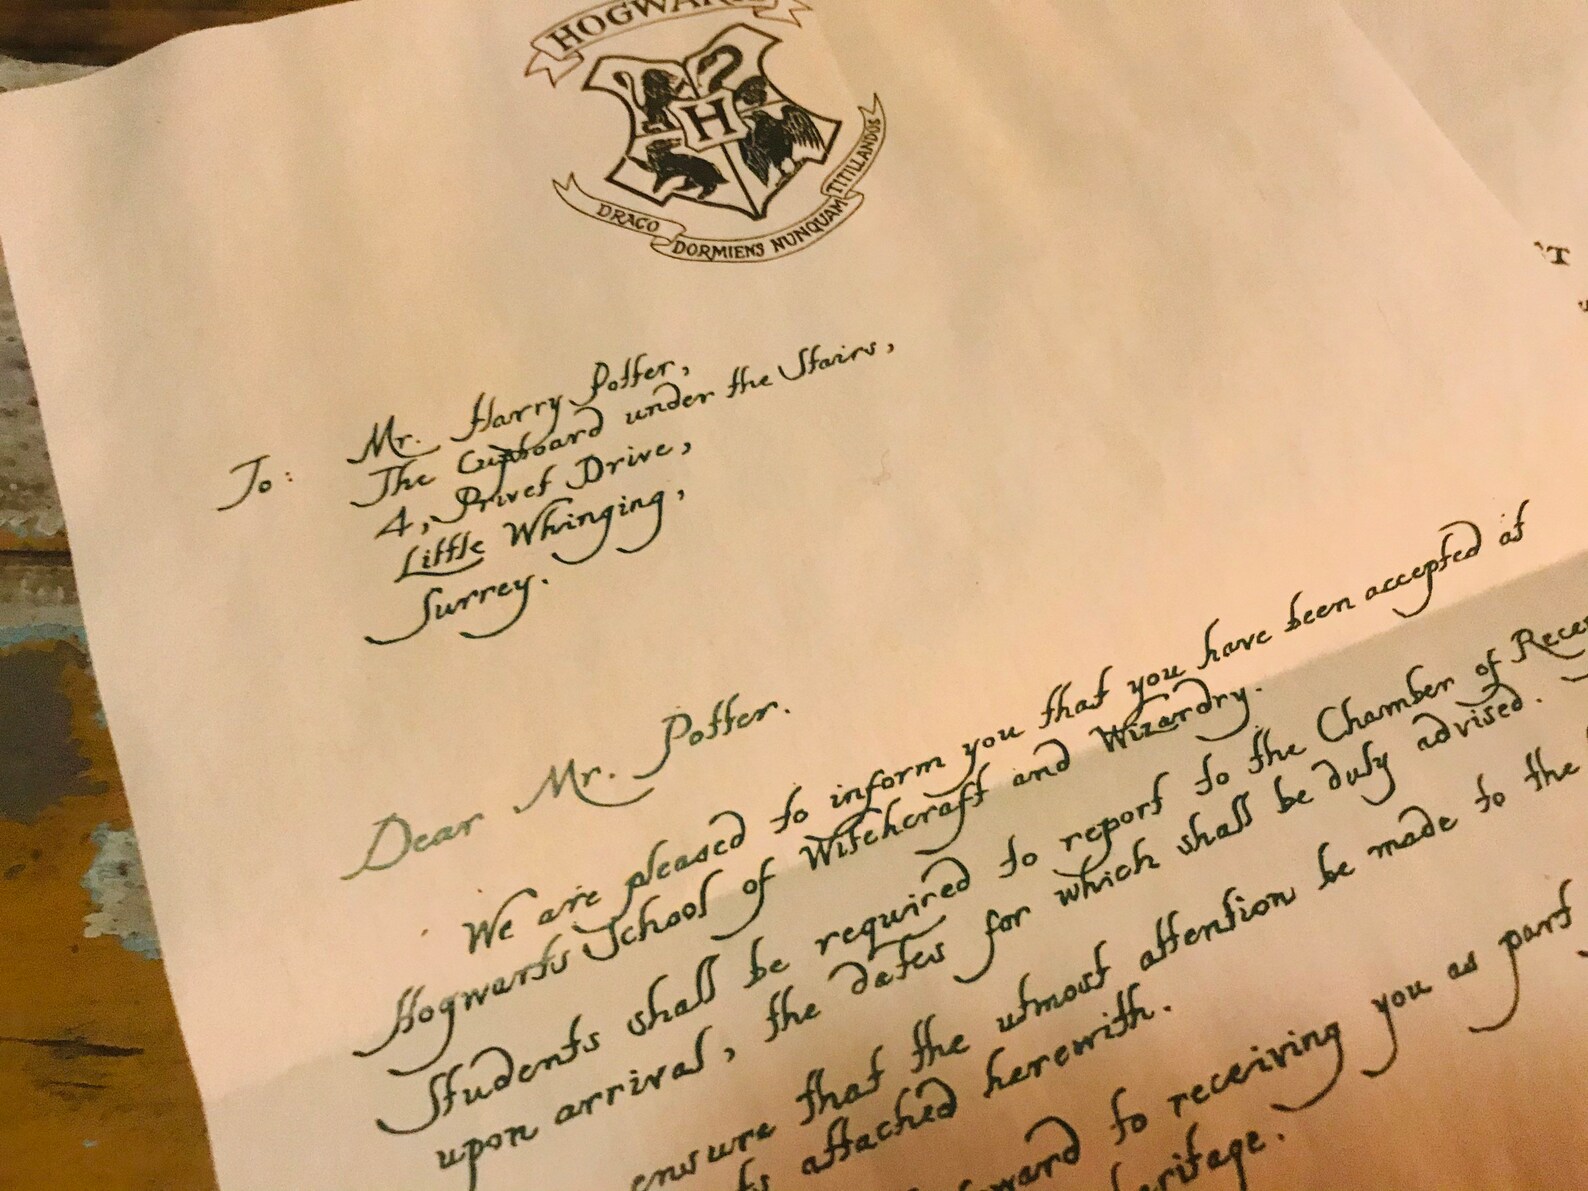 HOGWARTS
H
DRACO DORMIENS NUNQUAM TITILLANDUS
To: Mr. Harry Potter,
The Cupboard under the Stairs,
4, Privet Drive,
Little Whinging,
Surrey.
Dear Mr. Potter.
We are pleased to inform you that you have been accepted at
Hogwarts School of Witchcraft and Wizardry.
Students shall be required to report to the Chamber of
upon arrival, the dates for which shall be duly advised.
ensure that the utmost attention be made to the
attached herewith.
to receiving you as part